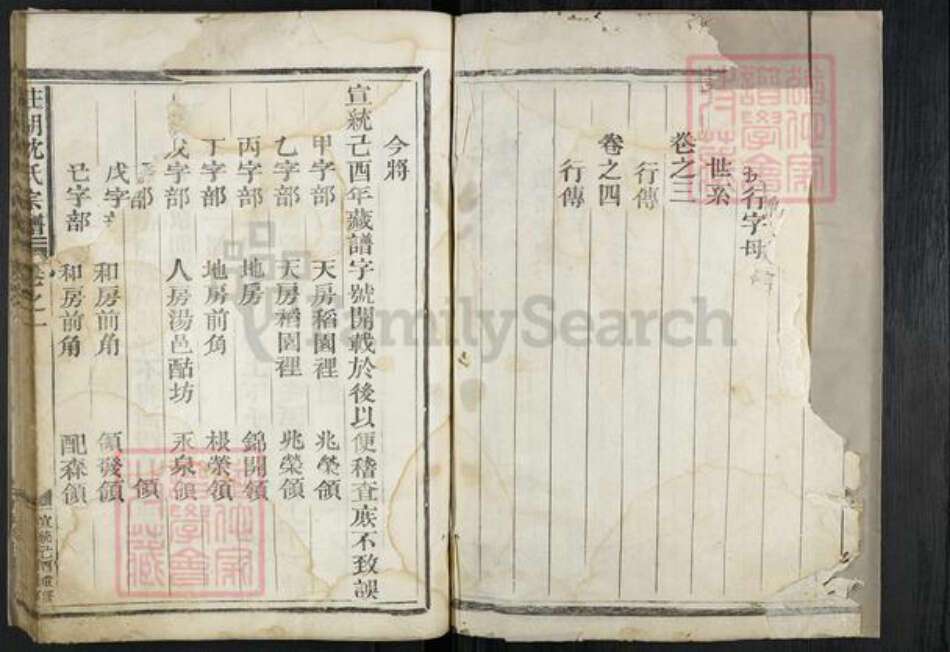 行字母
世系
卷之三
行傳
卷之四
行傳
今將
宣統己酉年藏譜字號開載於後以便稽查庶不致誤
甲字部 天房稻園裡 兆榮領
乙字部 天房稻園裡 兆榮領
丙字部 地房 錦開領
丁字部 地房前角 根榮領
戊字部 人房湯邑酤坊 永泉領
部 領
戊字 和房前角 領發領
己字部 和房前角 配森領
沈氏宗譜 卷之一
宣統己酉重修
FamilySearch